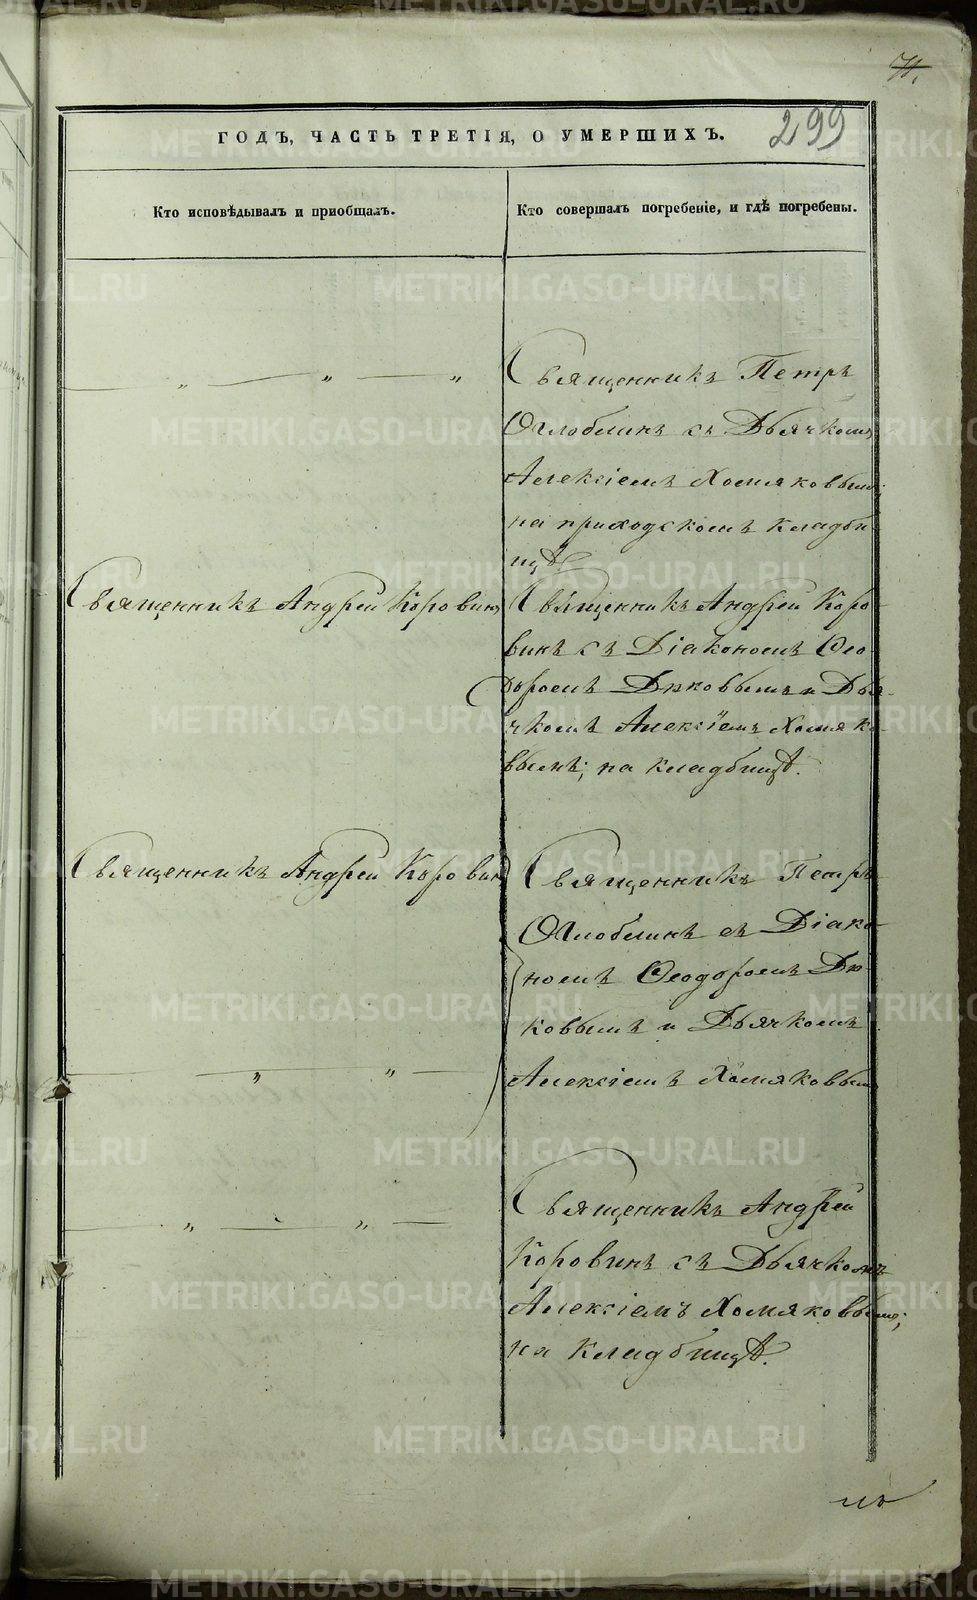 71.
299
ГОДЪ, ЧАСТЬ ТРЕТІЯ, О УМЕРШИХЪ.
Кто исповѣдывалъ и пріобщалъ.
Кто совершалъ погребеніе, и гдѣ погребены.
— „ — „ — „
Священникъ Петръ
Оглоблинъ съ Дьячкомъ
Алексіемъ Хомяковымъ;
на приходскомъ кладби-
щѣ.
Священникъ Андрей Коровинъ
Священникъ Андрей Коро-
винъ съ Діакономъ Ѳео-
доромъ Дюковымъ и Дья-
чкомъ Алексіемъ Хомяко-
вымъ; на кладбищѣ.
Священникъ Андрей Коровинъ
Священникъ Петръ
Оглоблинъ съ Діако-
номъ Ѳеодоромъ Дю-
ковымъ и Дьячкомъ
— „ — „ —
Алексіемъ Хомяковым
— „ — „ —
Священникъ Андрей
Коровинъ съ Дьячкомъ
Алексіемъ Хомяковымъ;
на кладбищѣ.
METRIKI.GASO-URAL.RU